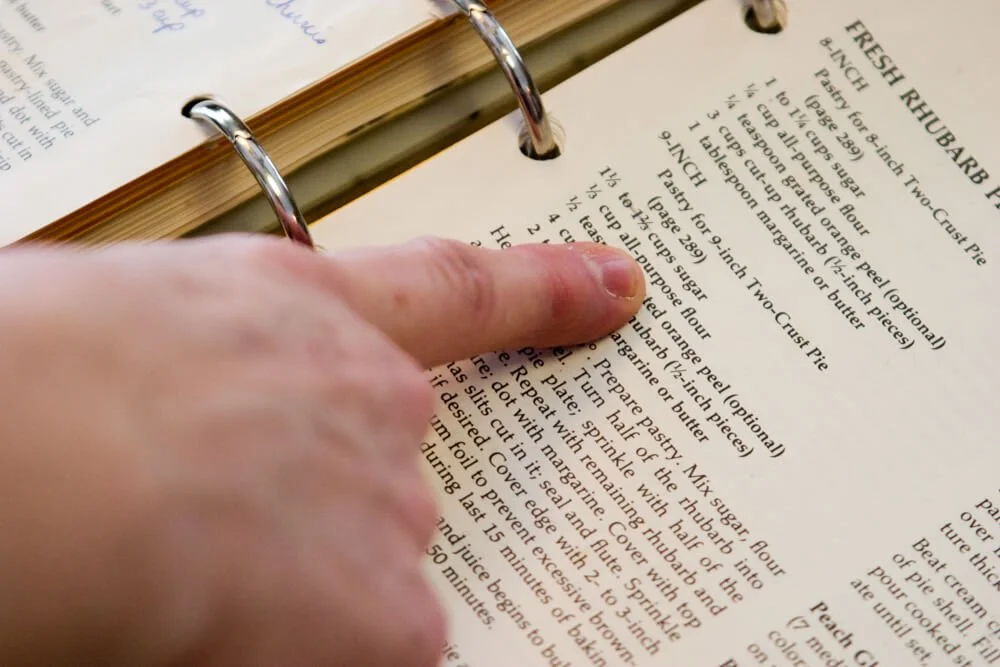 cup
3 cup
butter
Mix sugar and
pastry-lined pie
dot with
cut in
FRESH RHUBARB
8-INCH
Pastry for 8-inch Two-Crust Pie
(page 289)
1 to 1¼ cups sugar
¼ cup all-purpose flour
¼ teaspoon grated orange peel (optional)
3 cups cut-up rhubarb (½-inch pieces)
1 tablespoon margarine or butter
9-INCH
Pastry for 9-inch Two-Crust Pie
(page 289)
1⅓ to 1⅔ cups sugar
⅓ cup all-purpose flour
½ orange peel (optional)
4 (½-inch pieces)
2 or butter
Prepare pastry. Mix sugar, flour
Turn half of the rhubarb into
pie plate; sprinkle with half of the
Repeat with remaining rhubarb and
dot with margarine. Cover with top
has slits cut in it; seal and flute. Sprinkle
if desired. Cover edge with 2- to 3-inch
foil to prevent excessive brown-
during last 15 minutes of
and juice begins to
50 minutes.
over
ture
Beat cream
of pie shell.
pour cooked
ate until set.
Peach